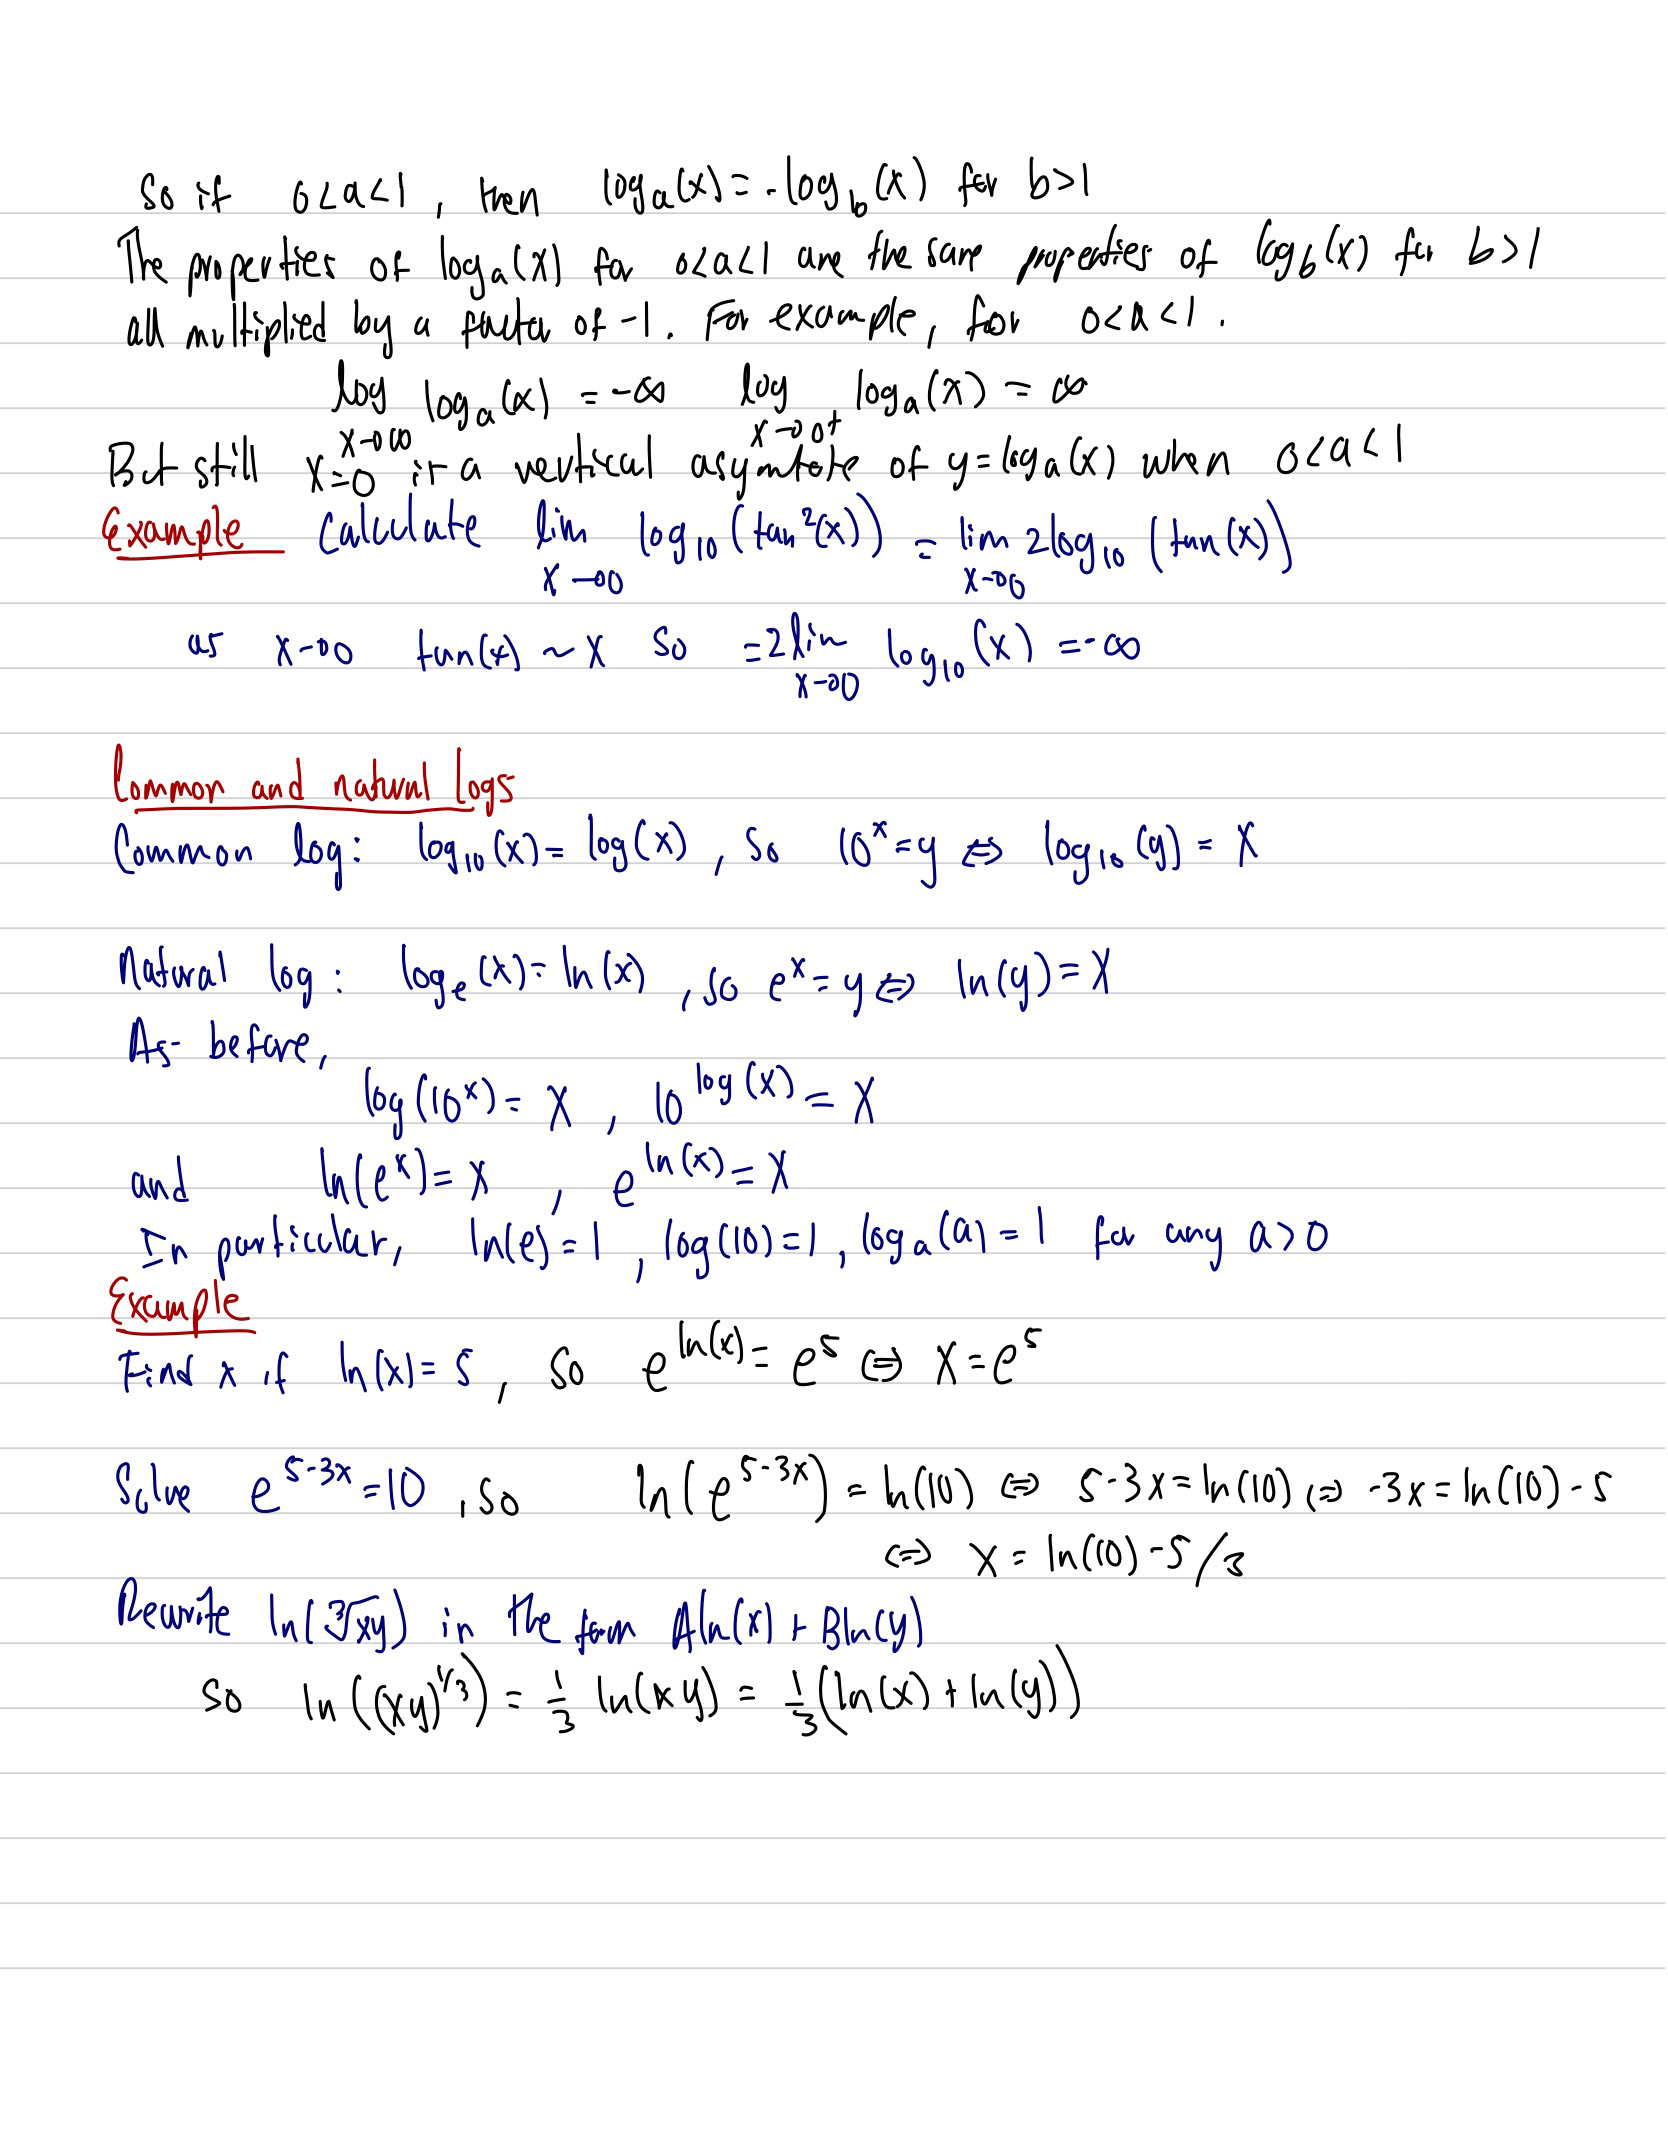 So if 0<a<1, then logₐ(x)=-log_b(x) for b>1
The properties of logₐ(x) for 0<a<1 are the same properties of log_b(x) for b>1
all multiplied by a factor of -1. For example, for 0<a<1.
log_{x→∞} logₐ(x) = -∞ log_{x→0⁺} logₐ(x) = ∞
But still x=0 is a vertical asymtote of y=logₐ(x) when 0<a<1
Example Calculate lim_{x→0} log₁₀(tan²(x)) = lim_{x→0} 2log₁₀(tan(x))
as x→0 tan(x) ~ x so =2lim_{x→0} log₁₀(x) =-∞
Common and natural Logs
Common log: log₁₀(x)= log(x), So 10^x=y ⇔ log₁₀(y) = x
Natural log: log_e(x)= ln(x), so e^x=y ⇔ ln(y)=x
As before,
log(10^x)= x, 10^{log(x)} = x
and ln(e^x)= x, e^{ln(x)} = x
In particular, ln(e)=1, log(10)=1, logₐ(a)=1 for any a>0
Example
Find x if ln(x)=5, so e^{ln(x)}=e^5 ⇔ x=e^5
Solve e^{5-3x}=10, so ln(e^{5-3x})=ln(10) ⇔ 5-3x=ln(10) ⇔ -3x=ln(10)-5
⇔ x = ln(10)-5/3
Rewrite ln(∛xy) in the form Aln(x)+Bln(y)
so ln((xy)^{1/3}) = 1/3 ln(xy) = 1/3(ln(x)+ln(y))